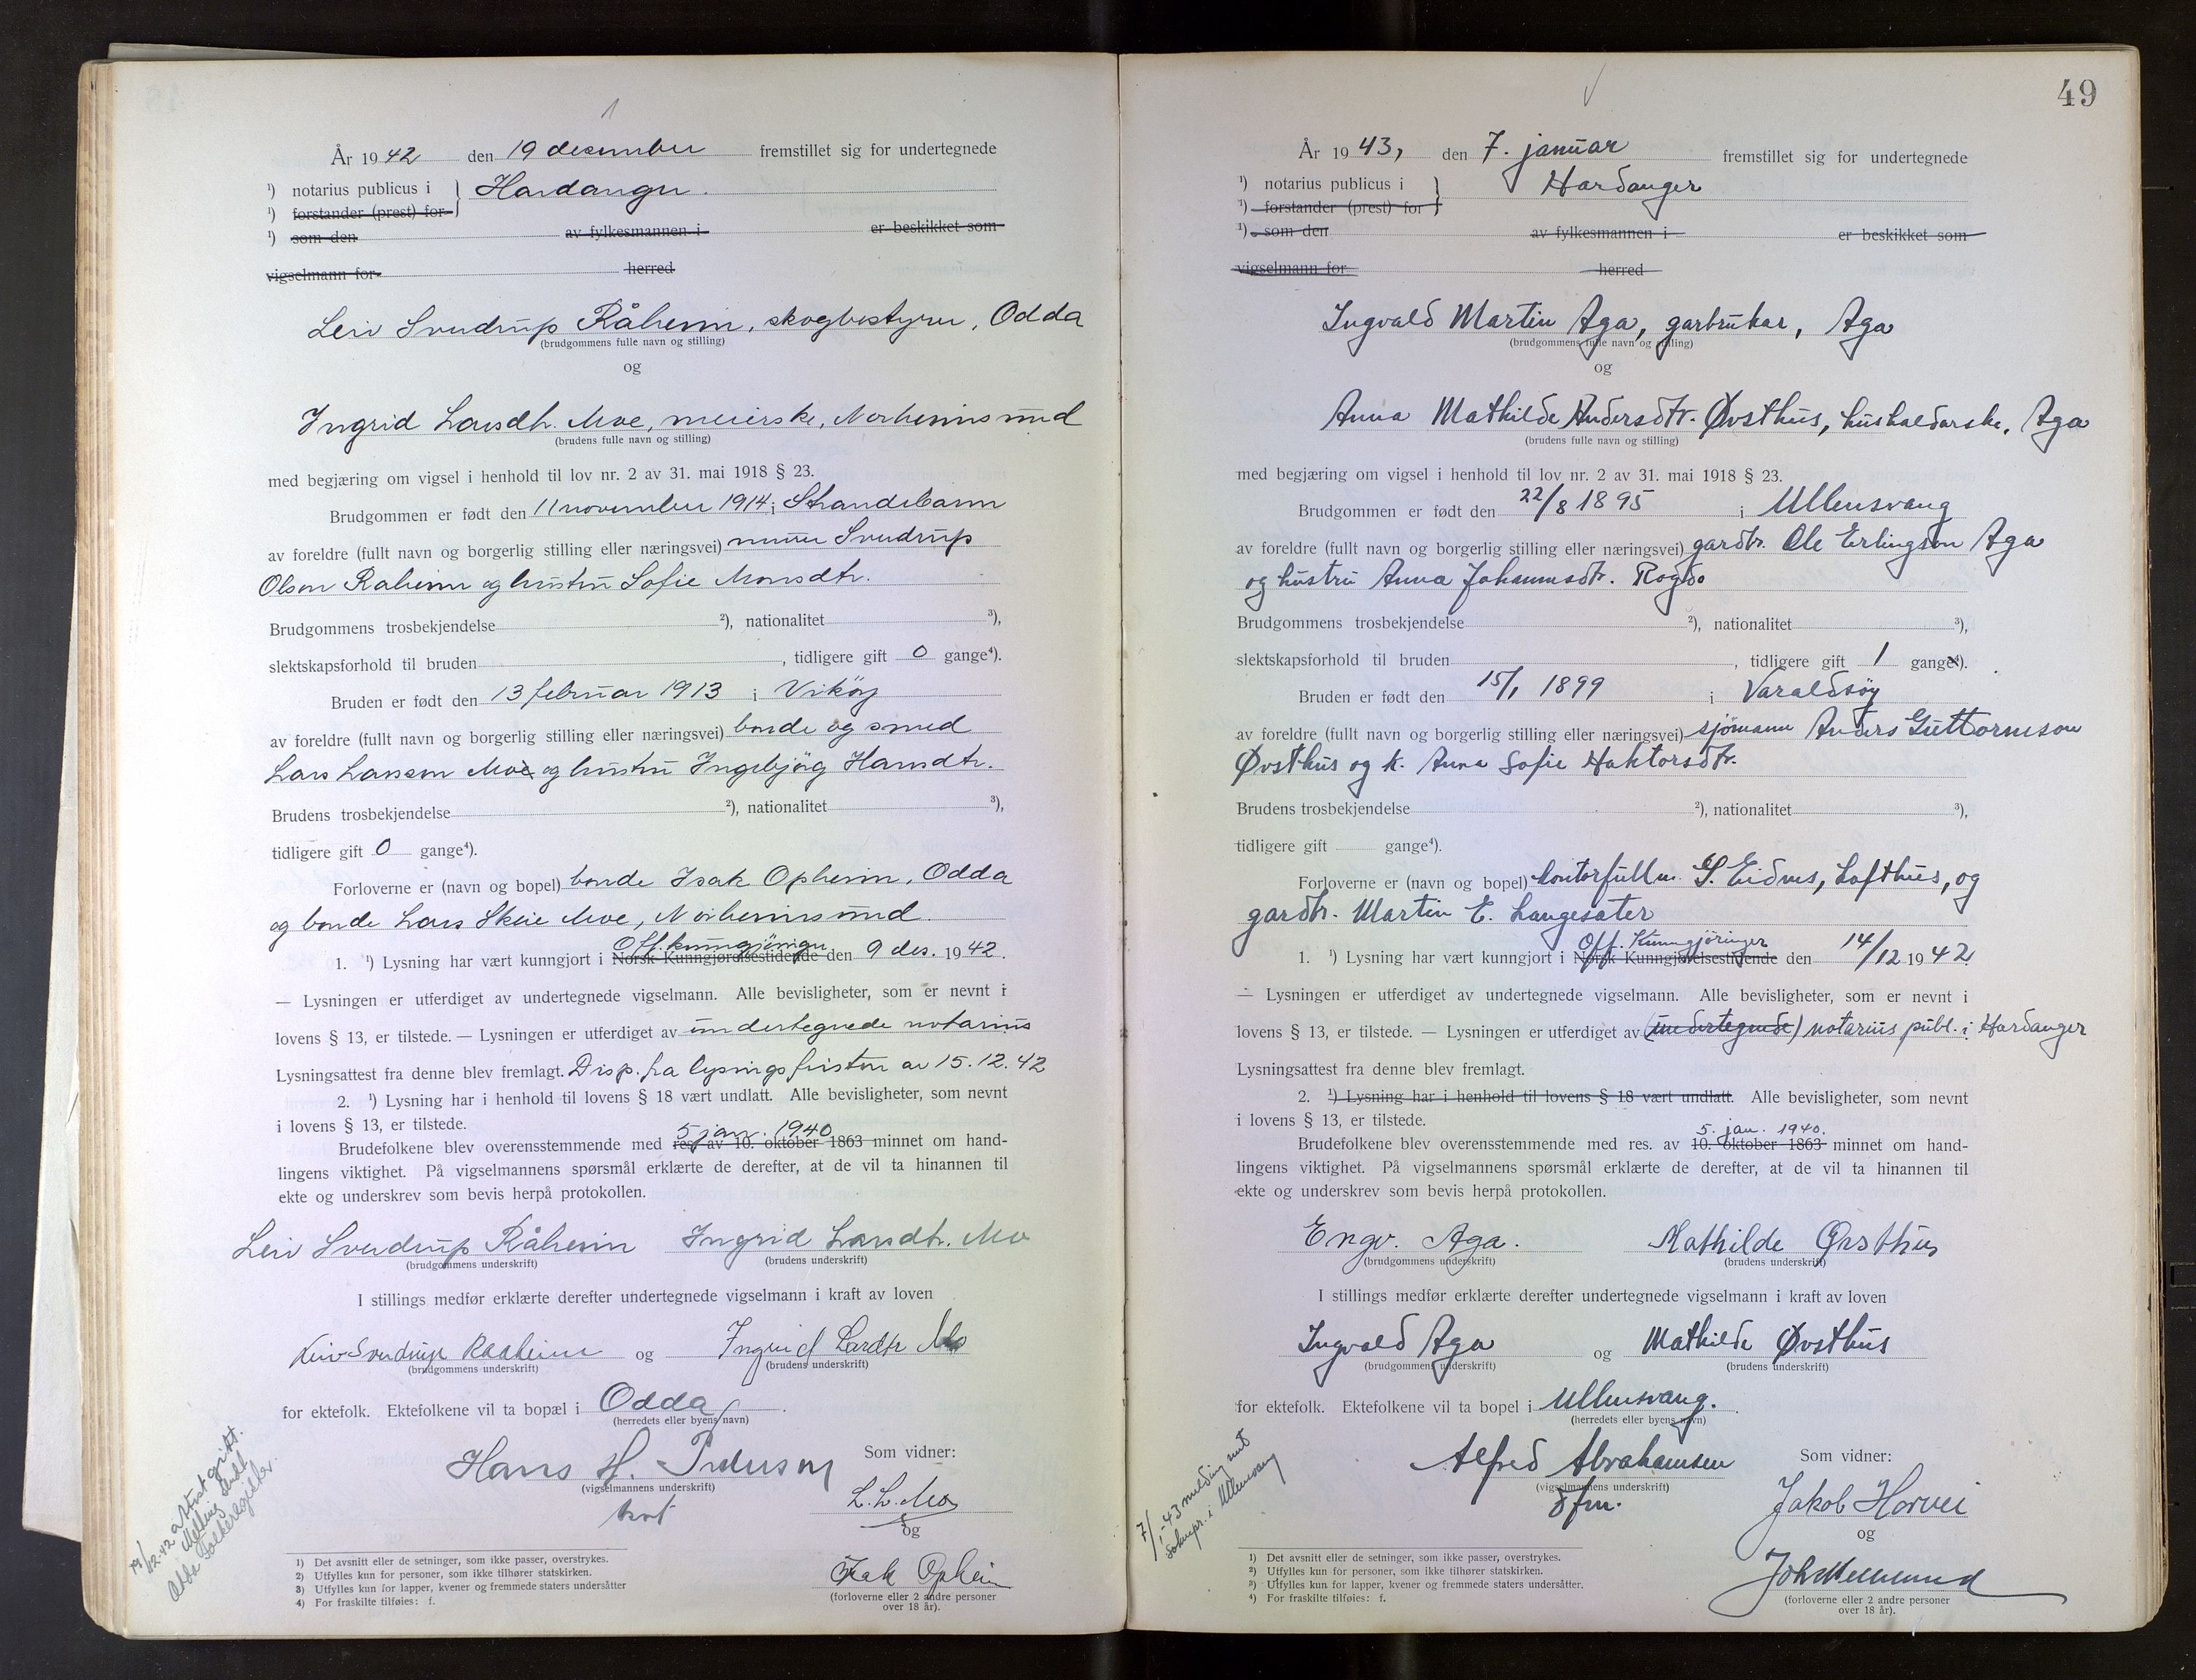 År 1942 den 19 desember fremstillet sig for undertegnede
¹) notarius publicus i } Hardanger.
¹) forstander (prest) for
¹) som den av fylkesmannen i er beskikket som
vigselmann for herred
Leiv Sverdrup Råheim, skogbestyrer, Odda
(brudgommens fulle navn og stilling)
og
Ingrid Larsdtr. Moe, meierske, Norheimsund
(brudens fulle navn og stilling)
med begjæring om vigsel i henhold til lov nr. 2 av 31. mai 1918 § 23.
Brudgommen er født den 11 november 1914 i Strandebarm
av foreldre (fullt navn og borgerlig stilling eller næringsvei) murer Sverdrup
Olson Raheim og hustru Sofie Monsdtr.
Brudgommens trosbekjendelse ²), nationalitet ³),
slektskapsforhold til bruden , tidligere gift 0 gange⁴).
Bruden er født den 13 februar 1913 i Vikøy
av foreldre (fullt navn og borgerlig stilling eller næringsvei) bonde og smed
Lars Larsson Moe og hustru Ingebjørg Hansdtr.
Brudens trosbekjendelse ²), nationalitet ³),
tidligere gift 0 gange⁴).
Forloverne er (navn og bopel) bonde Isak Opheim, Odda
og bonde Lars Skeie Moe, Norheimsund.
Off. kunngjöringer
1. ¹) Lysning har vært kunngjort i Norsk Kunngjørelsestidende den 9 des. 1942.
— Lysningen er utferdiget av undertegnede vigselmann. Alle bevisligheter, som er nevnt i
lovens § 13, er tilstede. — Lysningen er utferdiget av undertegnede notarius
Lysningsattest fra denne blev fremlagt. Disp. fra lysningsfristen av 15.12.42
2. ¹) Lysning har i henhold til lovens § 18 vært undlatt. Alle bevisligheter, som nevnt
i lovens § 13, er tilstede.
5 jan. 1940
Brudefolkene blev overensstemmende med res. av 10. oktober 1863 minnet om hand-
lingens viktighet. På vigselmannens spørsmål erklærte de derefter, at de vil ta hinannen til
ekte og underskrev som bevis herpå protokollen.
Leiv Sverdrup Råheim Ingrid Larsdtr. Mo
(brudgommens underskrift) (brudens underskrift)
I stillings medfør erklærte derefter undertegnede vigselmann i kraft av loven
Leiv Sverdrup Raaheim og Ingrid Larsdtr Mo
(brudgommens underskrift) (brudens underskrift)
for ektefolk. Ektefolkene vil ta bopæl i Odda.
(herredets eller byens navn)
Hans H. Pedersen Som vidner:
(vigselmannens underskrift)
L. L. Mo
og
Isak Opheim
(forloverne eller 2 andre personer
over 18 år).
19/12-42 attest gitt.
Melding sendt
Odda folkeregister.
1) Det avsnitt eller de setninger, som ikke passer, overstrykes.
2) Utfylles kun for personer, som ikke tilhører statskirken.
3) Utfylles kun for lapper, kvener og fremmede staters undersåtter
4) For fraskilte tilføies: f.
49
År 1943, den 7. januar fremstillet sig for undertegnede
¹) notarius publicus i } Hardanger
¹) forstander (prest) for
¹) som den av fylkesmannen i er beskikket som
vigselmann for herred
Ingvald Martin Aga, garbrukar, Aga
(brudgommens fulle navn og stilling)
og
Anna Mathilde Andersdtr. Øvsthus, hushaldarske, Aga
(brudens fulle navn og stilling)
med begjæring om vigsel i henhold til lov nr. 2 av 31. mai 1918 § 23.
Brudgommen er født den 22/8 1895 i Ullensvang
av foreldre (fullt navn og borgerlig stilling eller næringsvei) gardbr. Ole Erlingson Aga
og hustru Anna Johannesdtr. Rogdo
Brudgommens trosbekjendelse ²), nationalitet ³),
slektskapsforhold til bruden , tidligere gift 1 gange⁴).
Bruden er født den 15/1 1899 i Varaldsöy
av foreldre (fullt navn og borgerlig stilling eller næringsvei) sjömann Anders Guttormson
Øvsthus og k. Anna Sofie Haktorsdtr.
Brudens trosbekjendelse ²), nationalitet ³),
tidligere gift gange⁴).
Forloverne er (navn og bopel) kontorfullm. S. Eidnes, Lofthus, og
gardbr. Martin E. Langesater
Off. Kunngjöringer
1. ¹) Lysning har vært kunngjort i Norsk Kunngjørelsestidende den 14/12 1942
— Lysningen er utferdiget av undertegnede vigselmann. Alle bevisligheter, som er nevnt i
lovens § 13, er tilstede. — Lysningen er utferdiget av (undertegnede) notarius publ. i Hardanger
Lysningsattest fra denne blev fremlagt.
2. ¹) Lysning har i henhold til lovens § 18 vært undlatt. Alle bevisligheter, som nevnt
i lovens § 13, er tilstede.
5. jan. 1940.
Brudefolkene blev overensstemmende med res. av 10. oktober 1863 minnet om hand-
lingens viktighet. På vigselmannens spørsmål erklærte de derefter, at de vil ta hinannen til
ekte og underskrev som bevis herpå protokollen.
Engv. Aga. Mathilde Øvsthus
(brudgommens underskrift) (brudens underskrift)
I stillings medfør erklærte derefter undertegnede vigselmann i kraft av loven
Ingvald Aga og Mathilde Øvsthus
(brudgommens underskrift) (brudens underskrift)
for ektefolk. Ektefolkene vil ta bopel i Ullensvang.
(herredets eller byens navn)
Alfred Abrahamsen Som vidner:
(vigselmannens underskrift)
dfm.
Jakob Horvei
og
(forloverne eller 2 andre personer
over 18 år).
7/1-43 melding sendt
soknepr. i Ullensvang
1) Det avsnitt eller de setninger, som ikke passer, overstrykes.
2) Utfylles kun for personer, som ikke tilhører statskirken.
3) Utfylles kun for lapper, kvener og fremmede staters undersåtter.
4) For fraskilte tilføies: f.